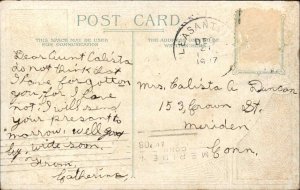 POST CARD
THIS SPACE MAY BE USED
FOR COMMUNICATION
THE ADDRESS ONLY
PLEASANT
DEC
Dear Aunt Calista
do not think that
I have forgotten
you for I have
not I will send
your present to
morrow. well good
by, write soon.
From
Catherine
Mrs. Calista A. Duncan
153, Crown St.
Meriden
Conn.
MERIDEN
CONN.